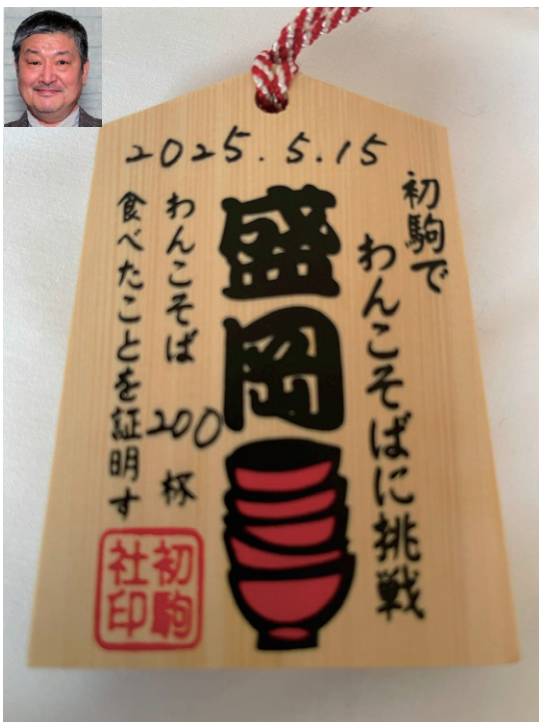 2025.5.15
初駒で
わんこそばに挑戦
盛岡
わんこそば 200杯
食べたことを証明す
初駒
社印